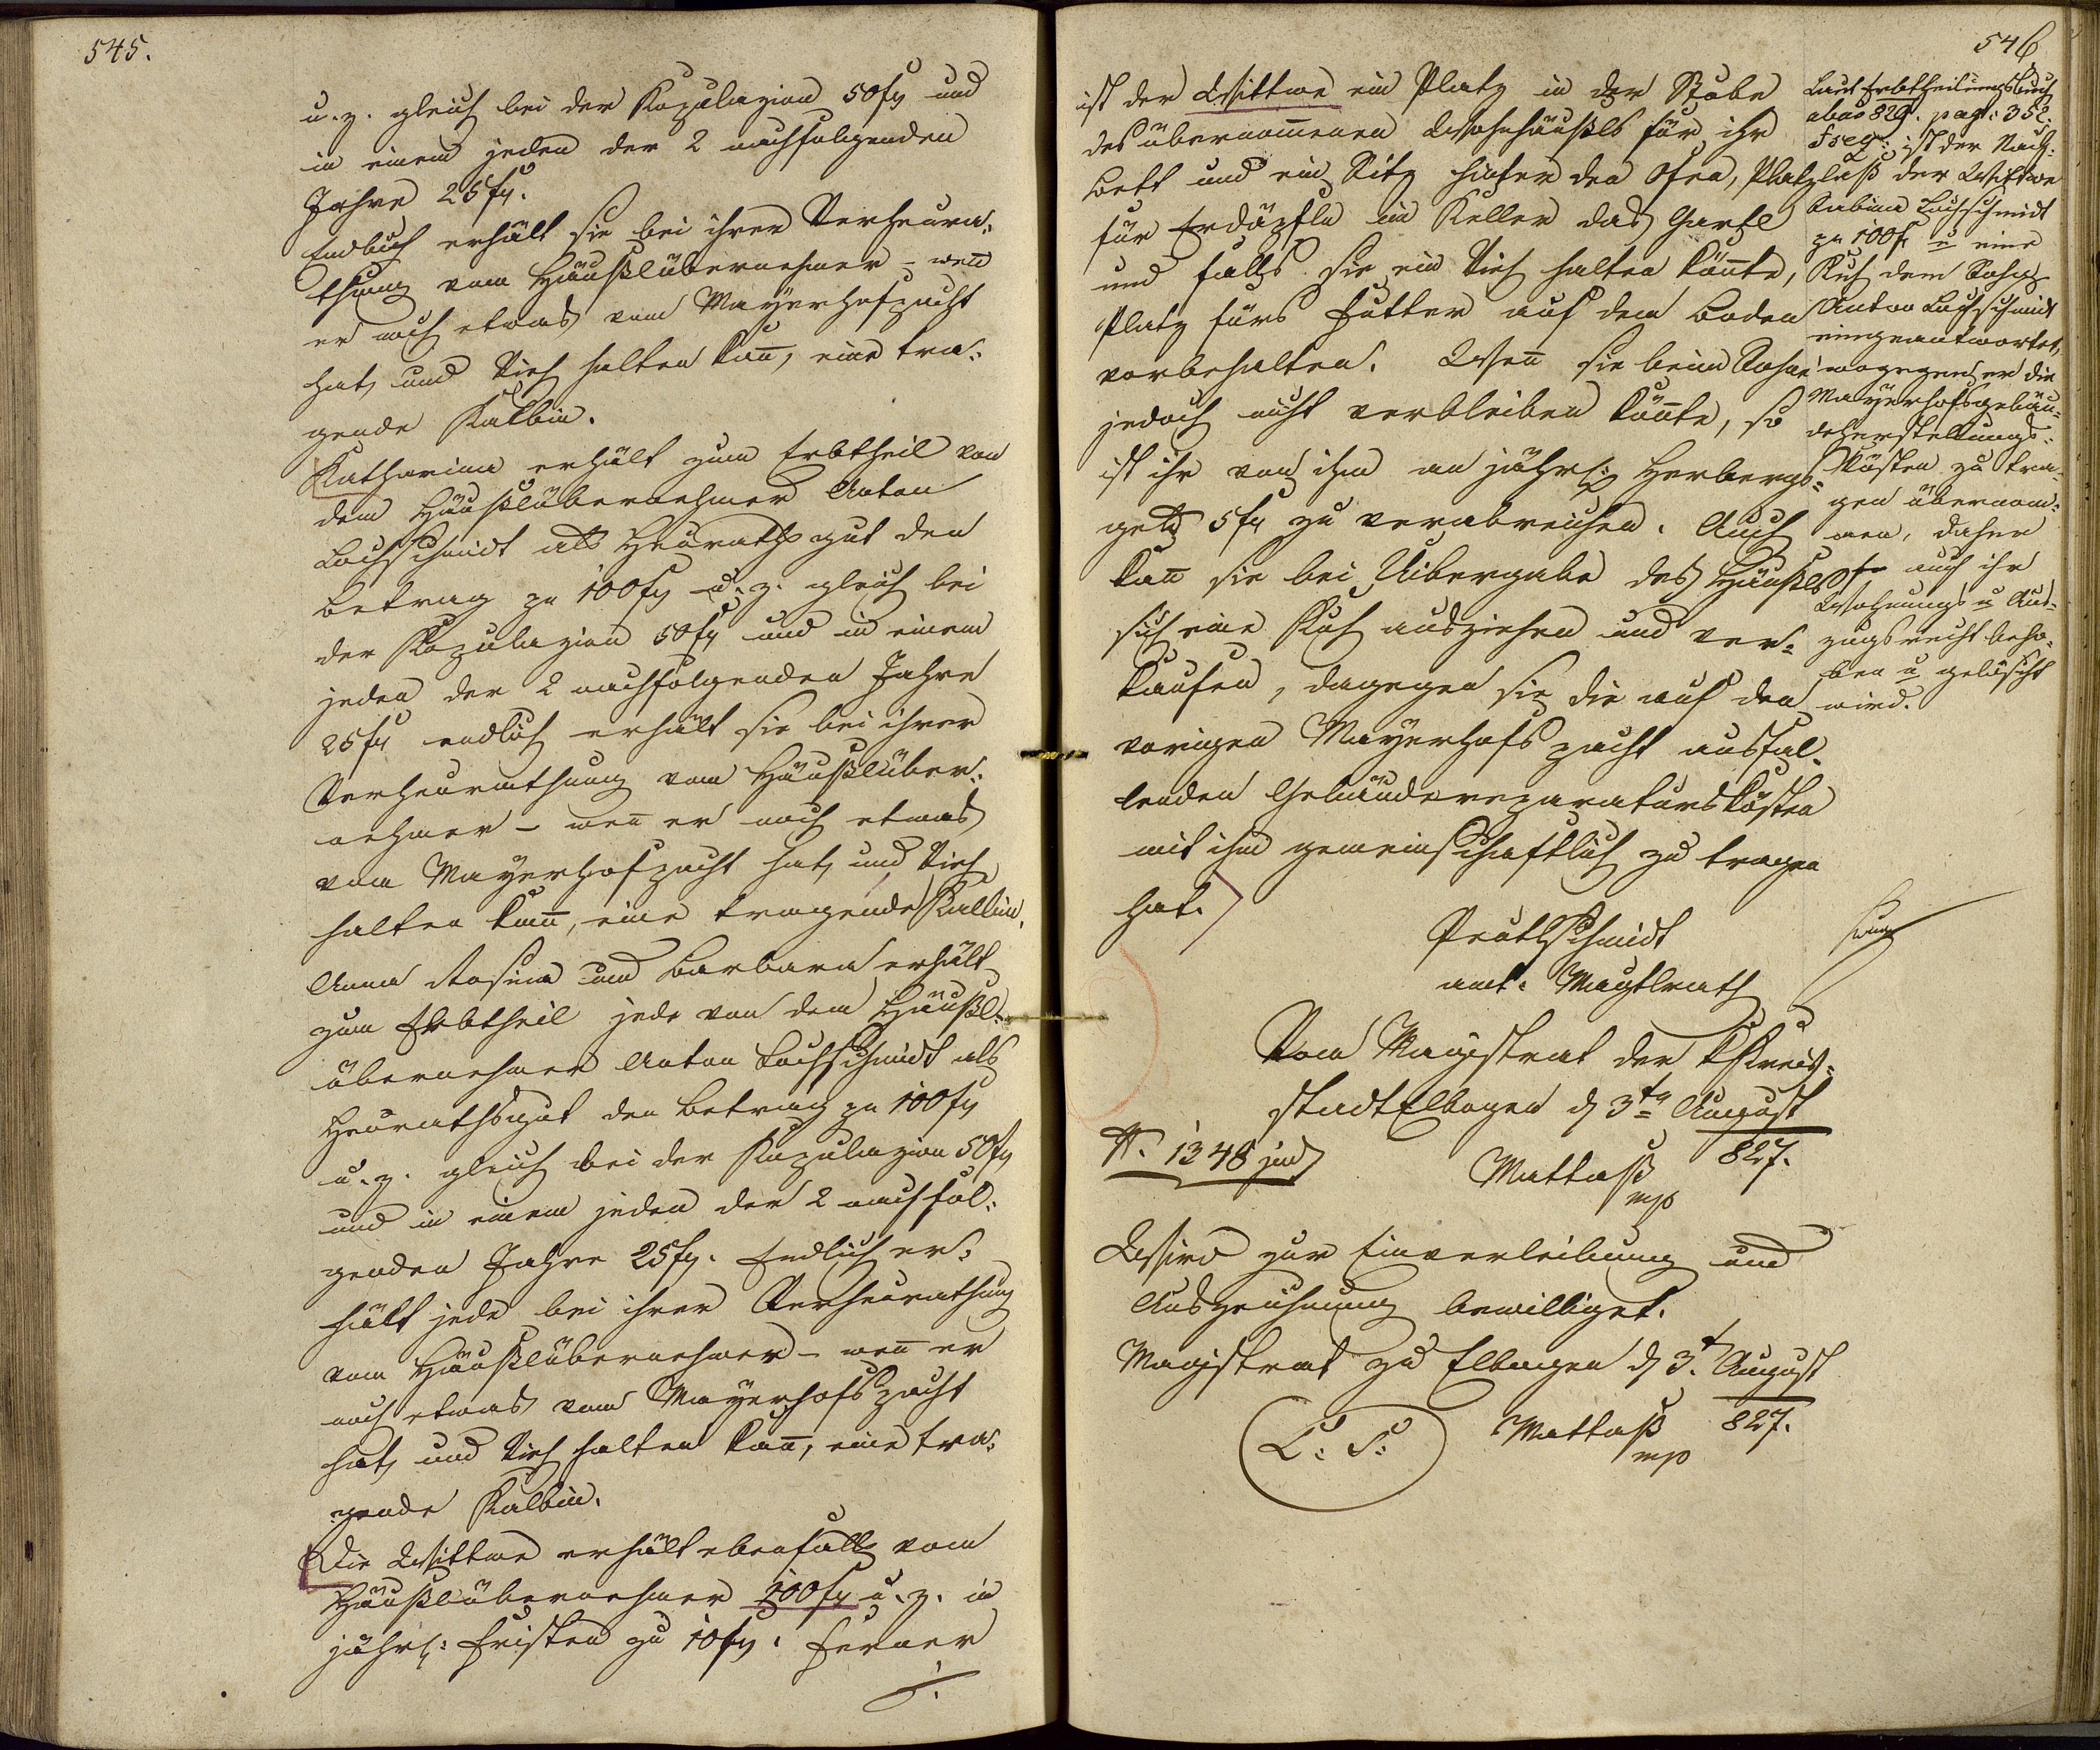 545.
u. z. gleich bei der Kopulazion 50 fl und
in einem jeden der 2 nachfolgenden
Jahre 25 fl.
Endlich erhält sie bei ihrer Verheura:
thung vom Häußlübernehmer – wen̄
er noch etwas vom Mayerhofpacht
hat, und Vieh halten kan̄, eine tra:
gende Kalbin.
Katharina erhält zum Erbtheil von
dem Häußlübernehmer Anton
Lochschmidt als Heurathsgut den
Betrag zu 100 fl u. z. gleich bei
der Kopulazion 50 fl und in einem
jeden der 2 nachfolgenden Jahre
25 fl endlich erhält sie bei ihrer
Verheurathung vom Häußlüber:
nehmer – wen̄ er noch etwas
vom Mayerhofpacht hat, und Vieh
halten kan̄, eine tragende Kalbin.
Anna Rosina und Barbara erhält
zum Erbtheil jede von dem Häußl:
übernehmer Anton Lochschmidt als
Heurathsgut den Betrag zu 100 fl
u. z. gleich bei der Kopulazion 50 fl
und in einem jeden der 2 nachfol:
genden Jahre 25 fl. Endlich er:
hält jede bei ihrer Verheurathung
vom Häußlübernehmer – wen̄ er
noch etwas vom Mayerhofspacht
hat, und Vieh halten kan̄, eine tra:
gende Kalbin.
Die Wittwe erhält ebenfalls vom
Häußlübernehmer 100 fl u. z. in
jährl: Fristen zu 10 fl. Ferner
./.
546
ist der Wittwe ein Platz in der Stube
des übernom̄enen Wohnhäußls für ihr
Bett und ein Sitz hinter den Ofen, Platz
für Erdäpfln im Keller das Gartl
und falls sie ein Vieh halten kön̄te,
Platz fürs Futter auf dem Boden
vorbehalten. Wen̄ sie beim Sohne
jedoch nicht verbleiben kön̄te, so
ist ihr von ihm an jährl: Herbergs:
geld 5 fl zu verabreichen. Auch
kan̄ sie bei Uibergabe des Häußls
sich eine Kuh ausziehen und ver:
kaufen, dagegen sie die auf den
vorigen Mayerhofs pacht ausfal:
lenden Gebäudereparaturskösten
mit ihm gemeinschaftlich zu tragen
hat.
amt. Magtlrath
Vom Magistrat der kKreis:
stadt Elbogen d 3ten August
827.
N. 1348 jud
Mattaß
mp
Wird zur Einverleibung und
Auszeichnung bewilliget.
Magistrat zu Elbogen d 3t. August
827.
L: S:
Mattaß
mp
Laut Erbtheilungsbuch
abao 829. pag: 352.
Fseq: ist der Nach:
laß der Wittwe
Sabina Lochschmidt
zu 100 f u eine
Kuh dem Sohn
Anton Lochschmidt
eingeantwortet,
wogegen er die
Mayerhofsgebäu:
deherstellungs:
kösten zu tra:
gen übernom̄:
men, daher
auch ihr
Wohnungs u Aus:
zugsrecht beho:
ben u gelöscht
wird.